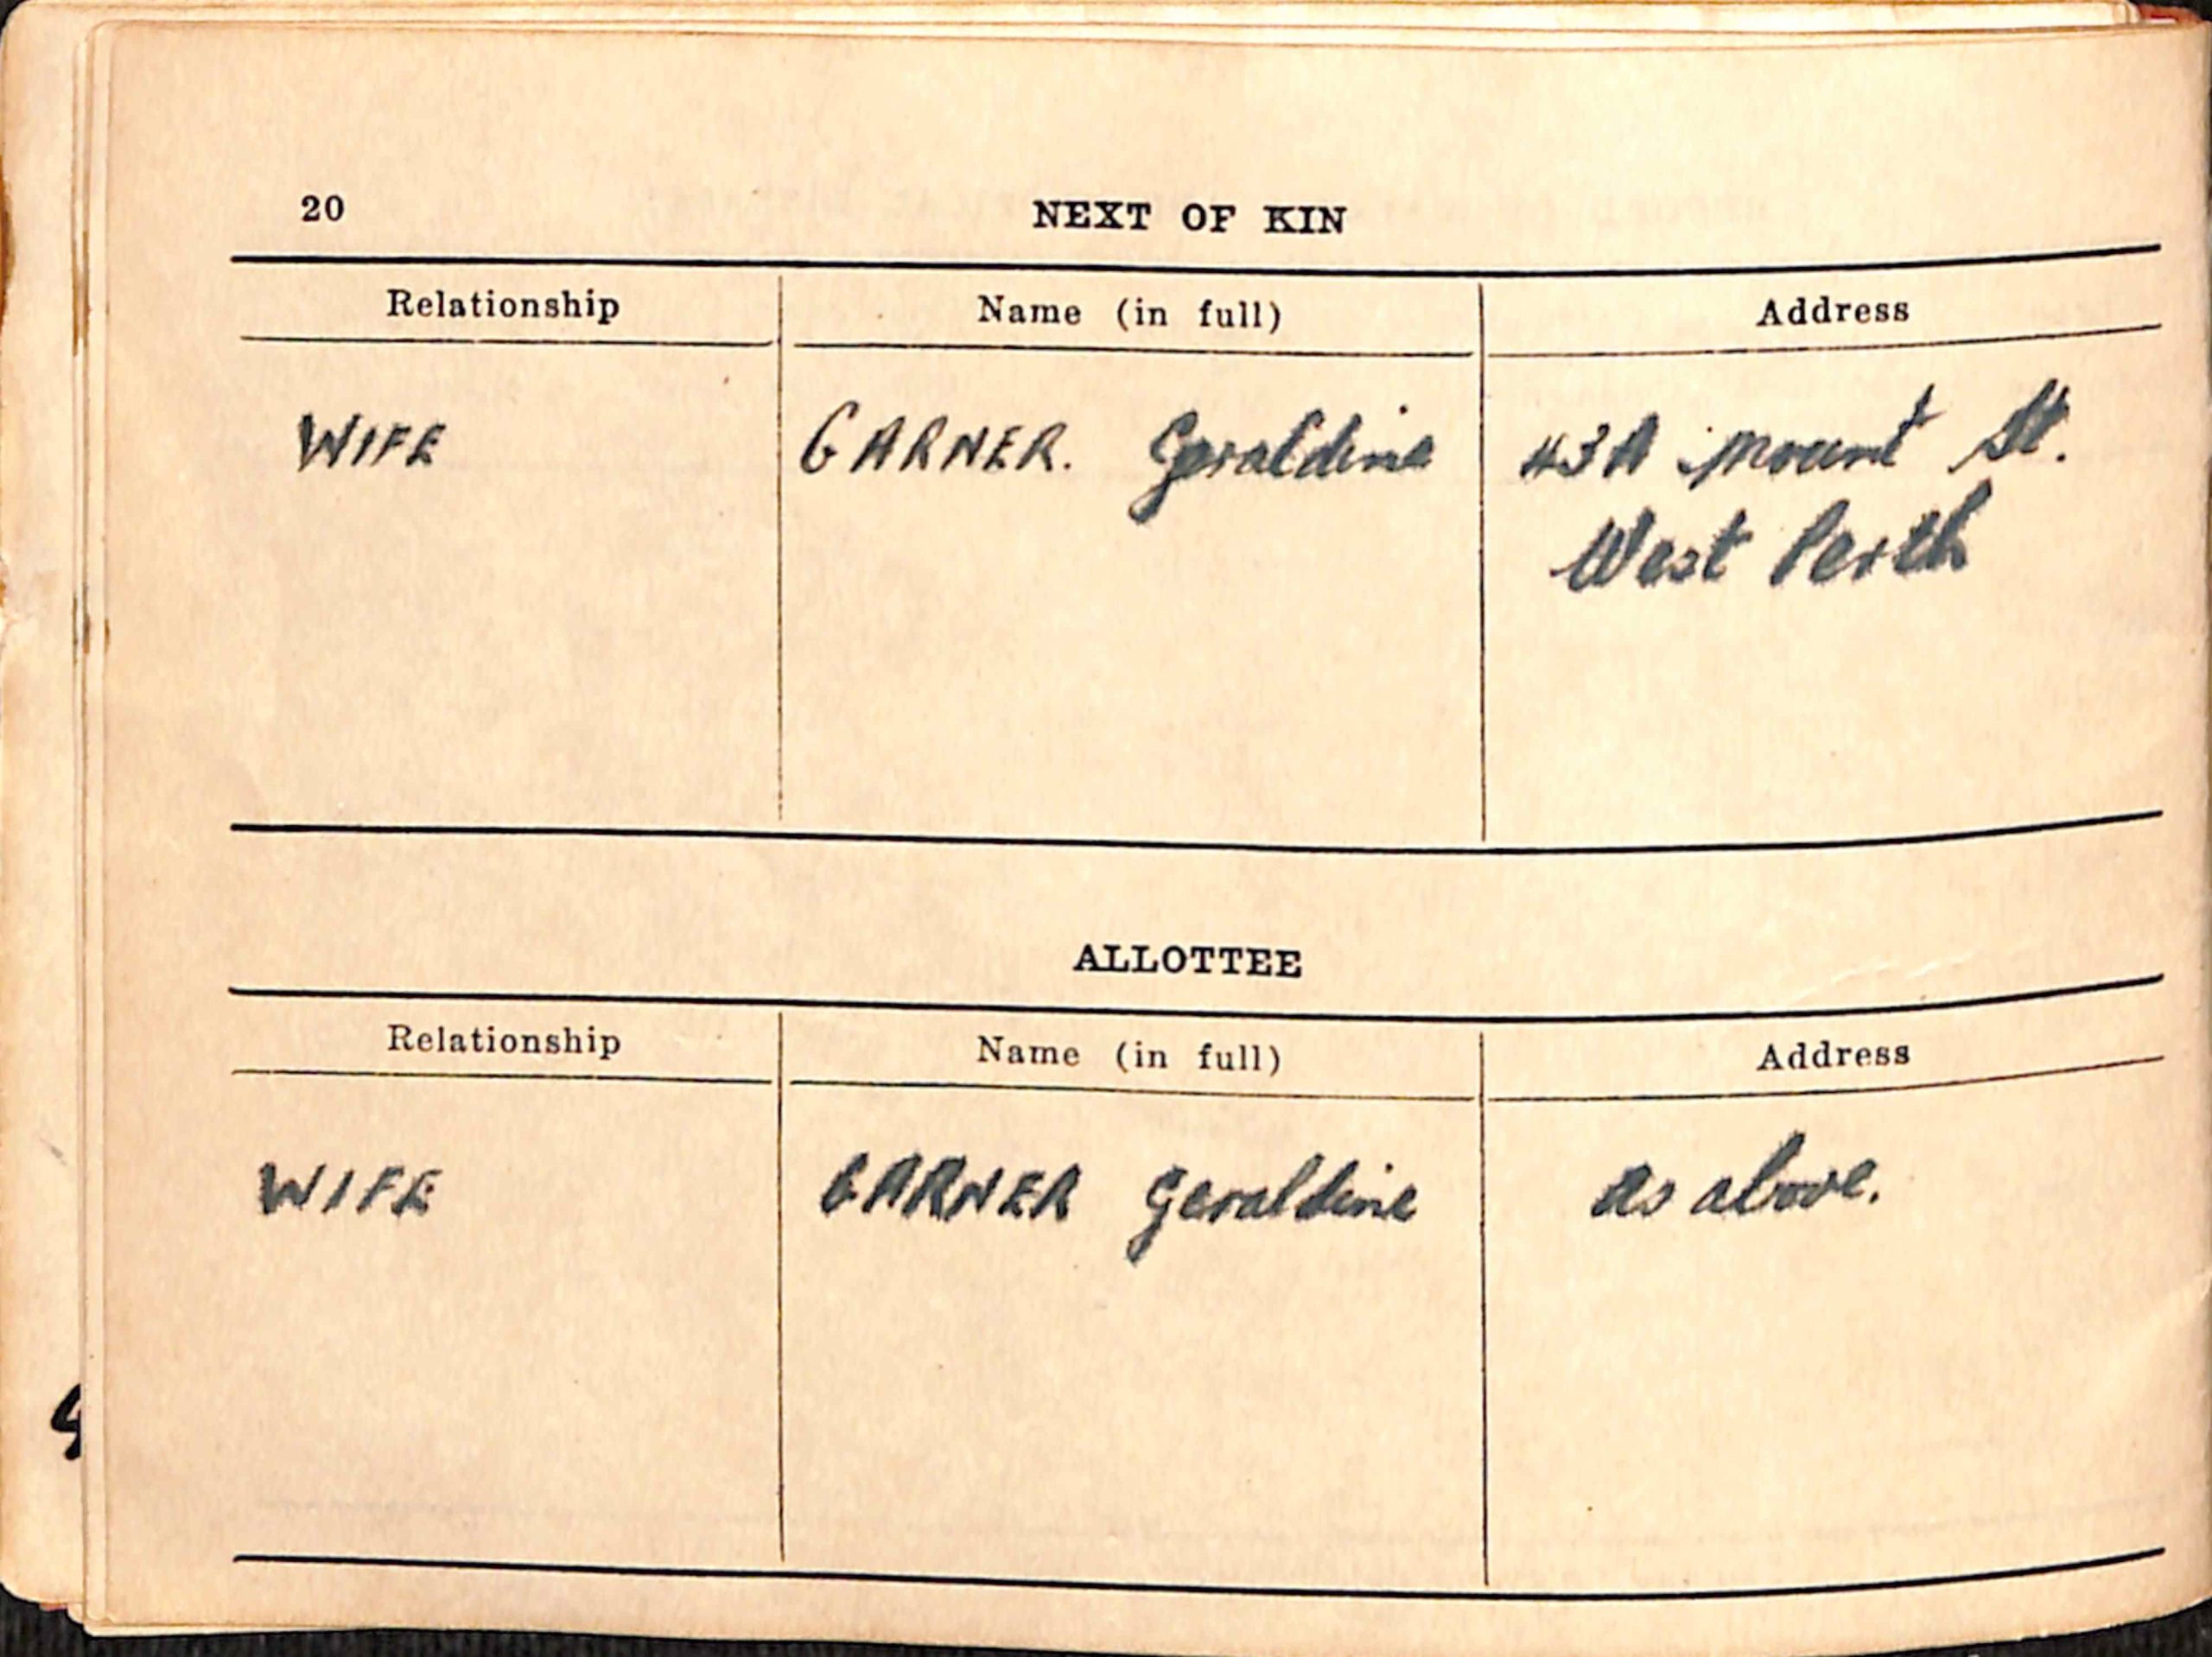 20 NEXT OF KIN
Relationship Name (in full) Address
WIFE GARNER. Geraldine 43A Mount St.
West Perth
ALLOTTEE
Relationship Name (in full) Address
WIFE GARNER Geraldine as above.